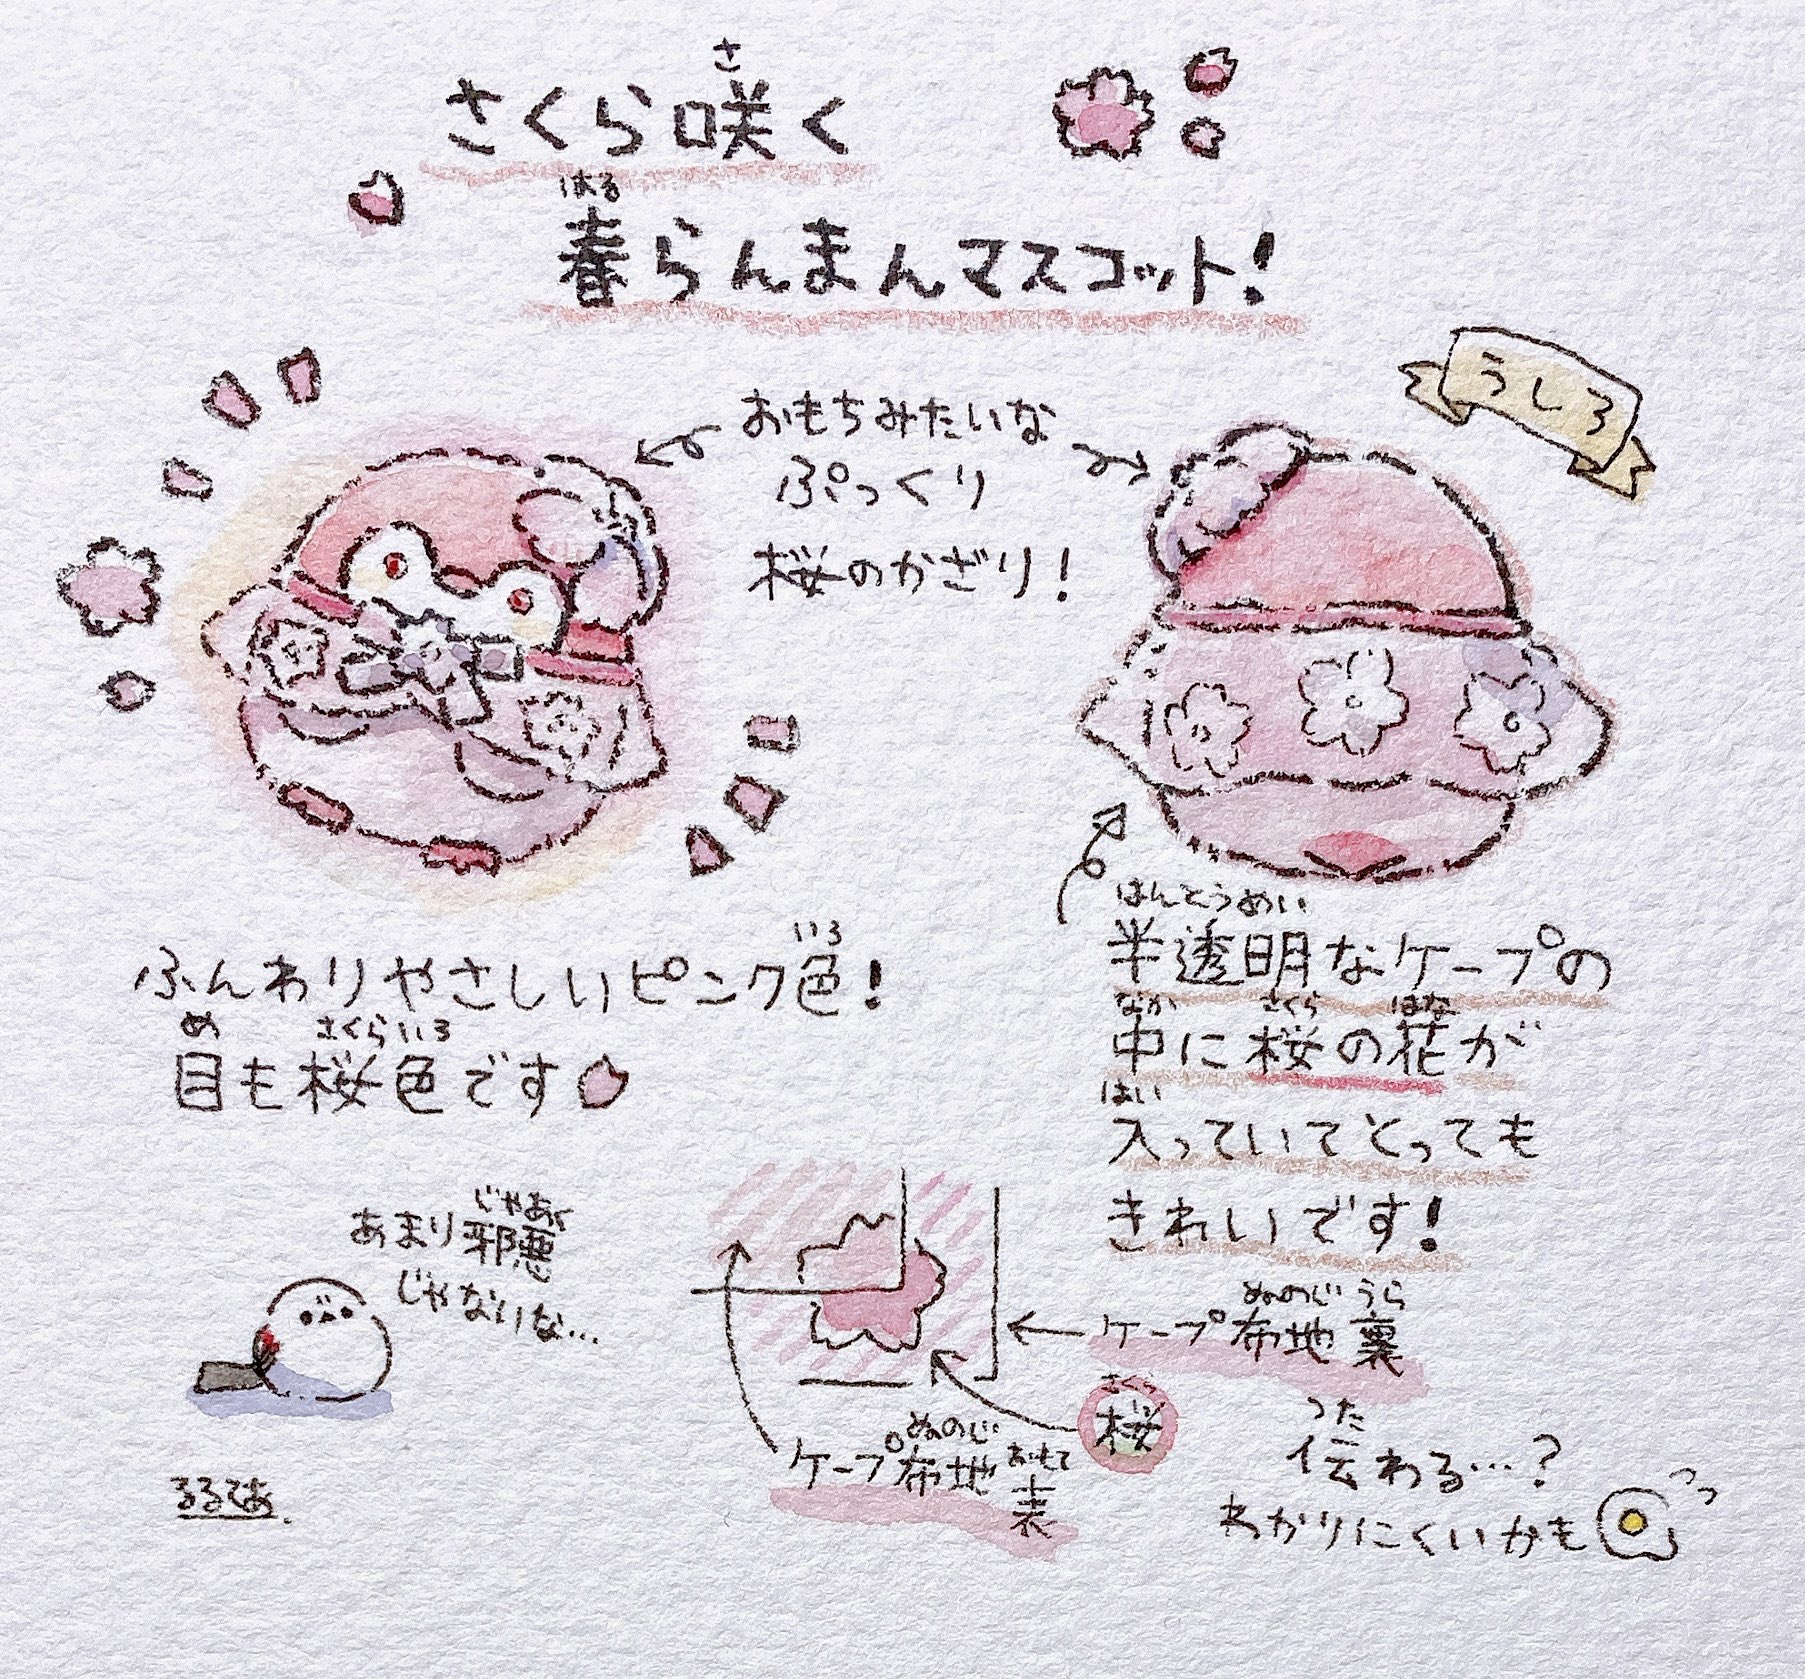 さ
さくら咲く
はる
春らんまんマスコット!
うしろ
おもちみたいな
ぷっくり
桜のかざり!
いろ
ふんわりやさしいピンク色!
め さくらいろ
目も桜色です
はんとうめい
半透明なケープの
なか さくら はな
中に桜の花が
はい
入っていてとっても
きれいです!
じゃあく
あまり邪悪
じゃないな…
ぬのじ うら
ケープ布地裏
さくら
桜
ぬのじ おもて
ケープ布地表
つた
伝わる…?
わかりにくいかも
るるてあ.